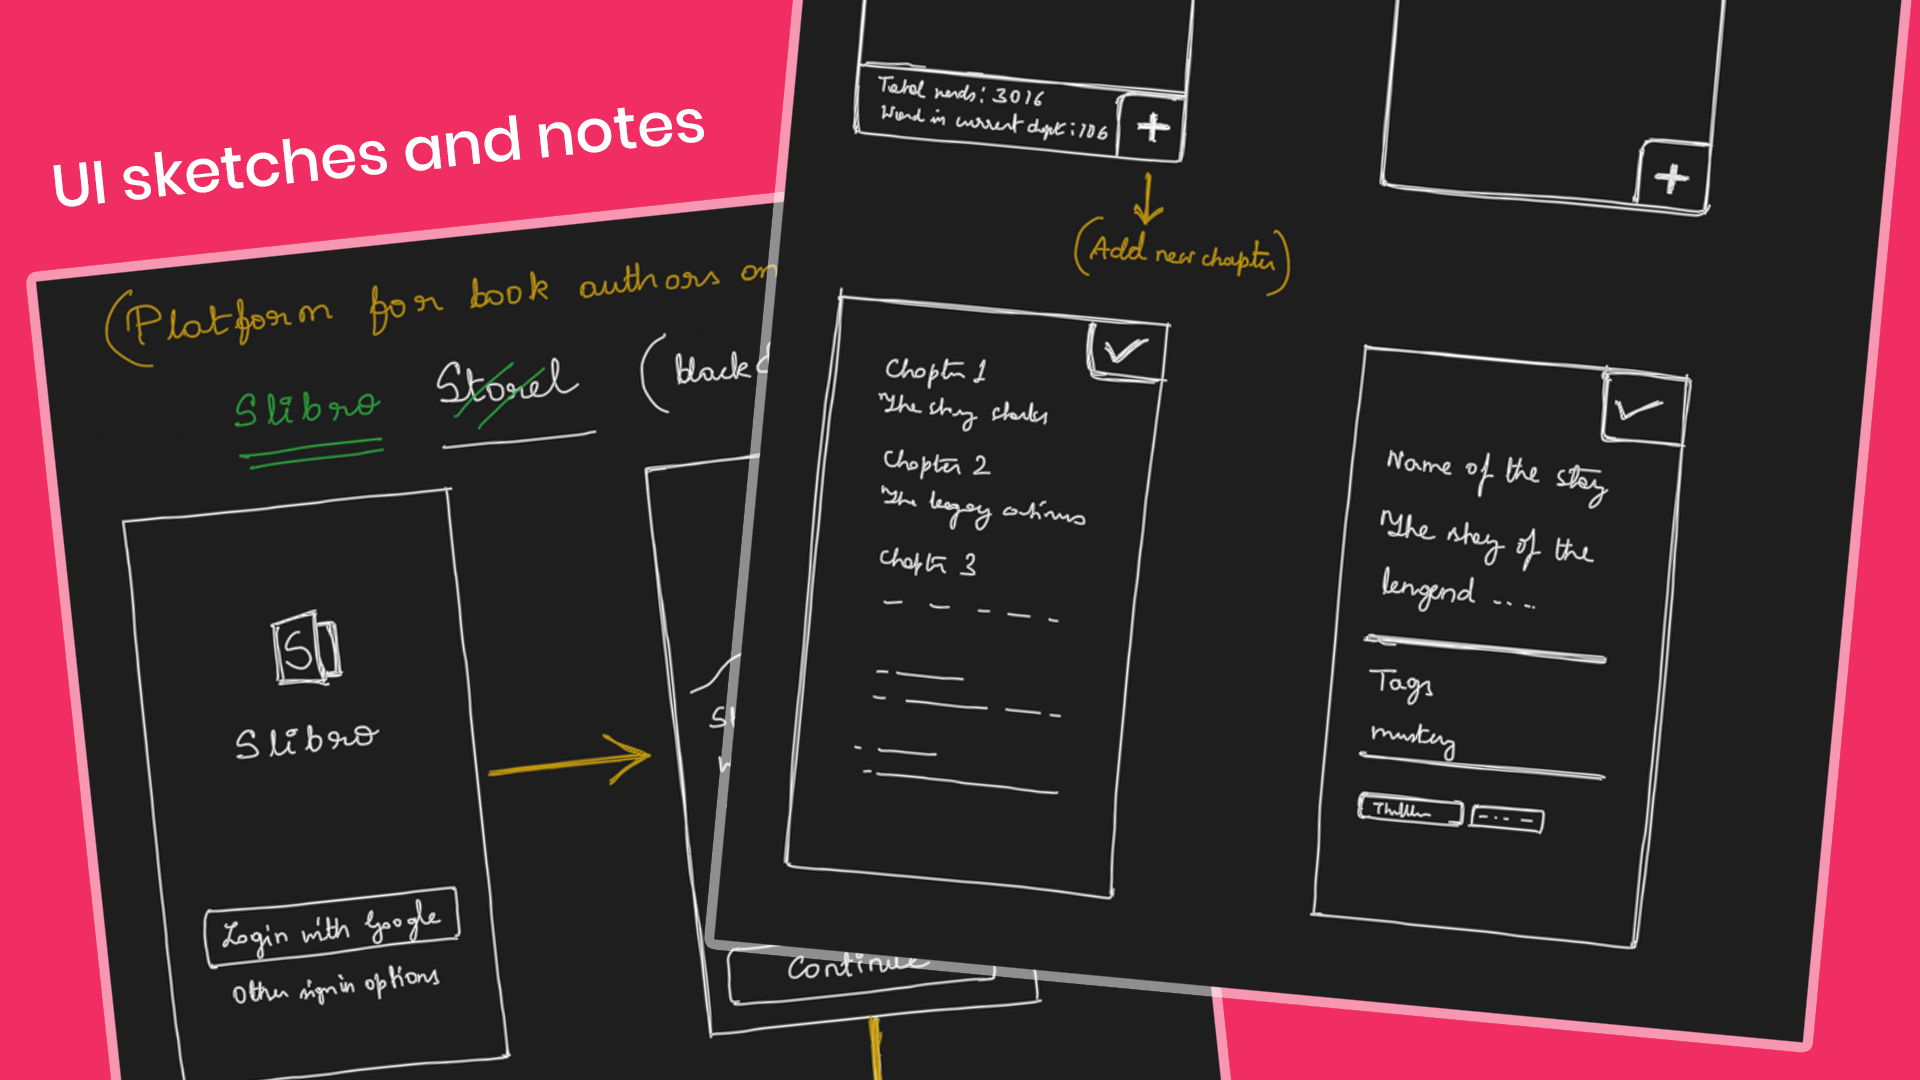 UI sketches and notes
(Platform for book authors on
Slibro Storel (black
S
Slibro
Login with Google
Other signin options
Continue
Total words: 3016
Word in current chpt: 106
+
+
(Add new chapter)
Chapter 1
The story starts
Chapter 2
The legacy continues
Chapter 3
Name of the story
The story of the
lengend ....
Tags
mustery
Thriller